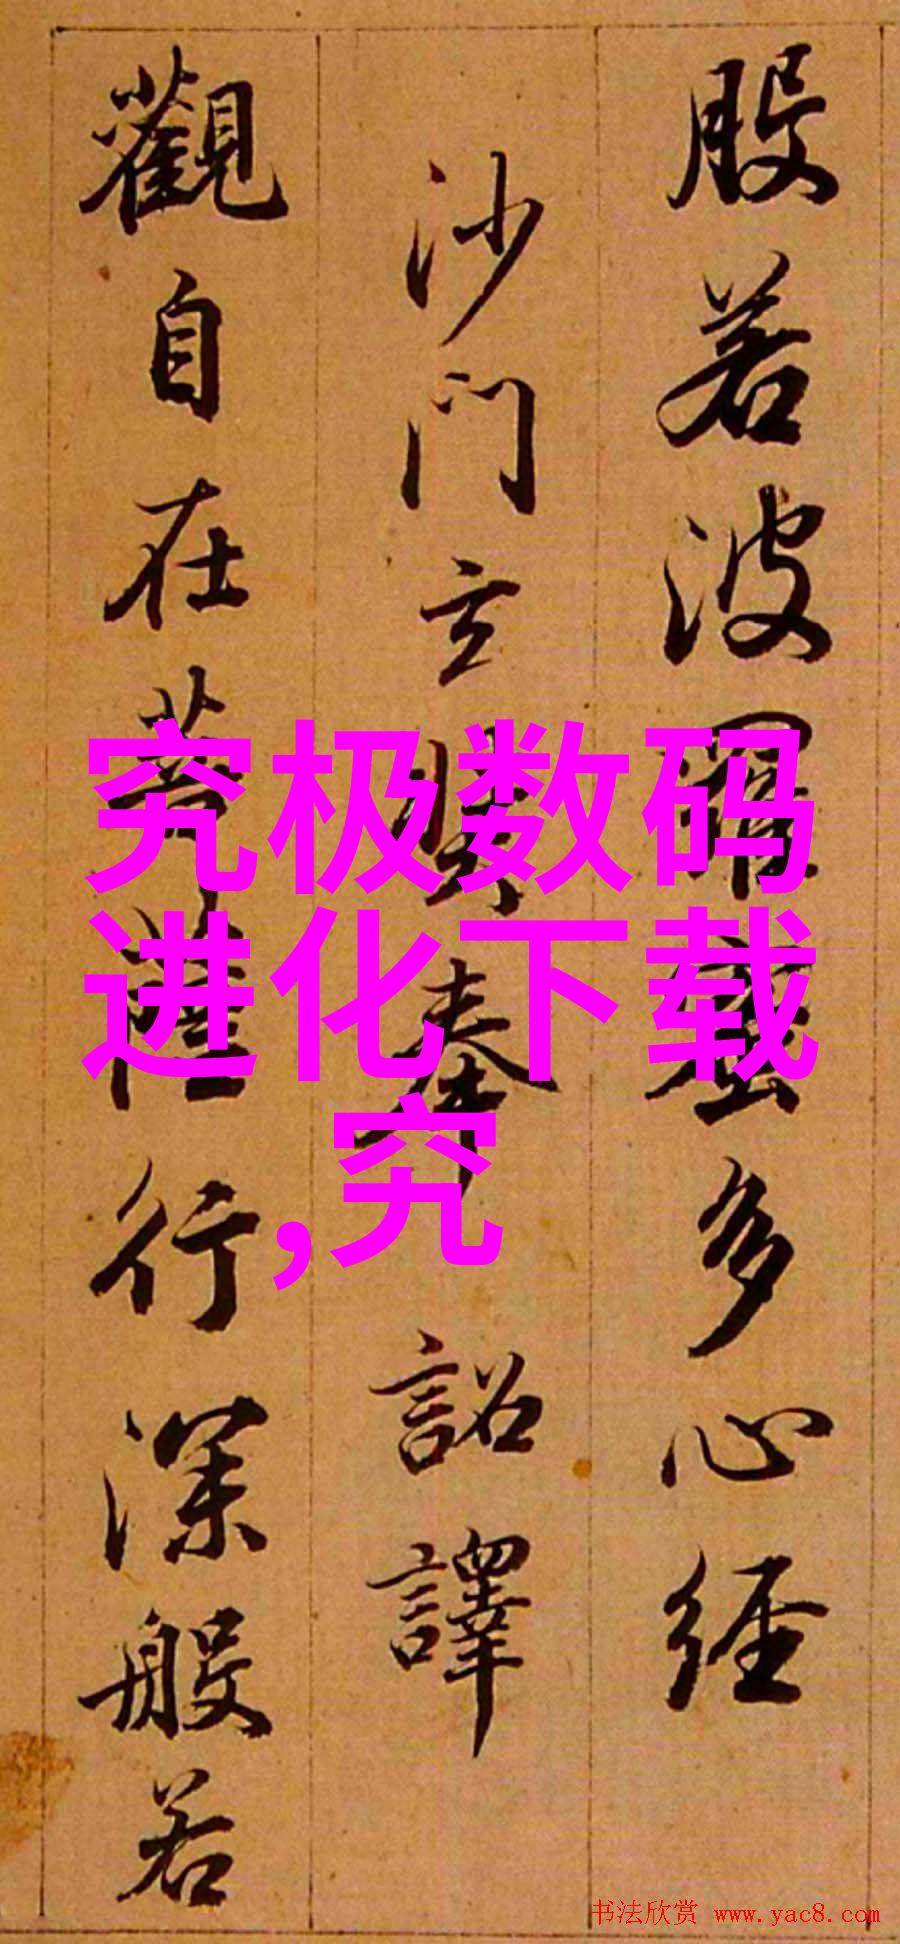 般若波羅蜜多心經
沙門玄奘奉詔譯
觀自在菩薩行深般若
究极数码
进化下载
,究
书法欣赏 www.yac8.com